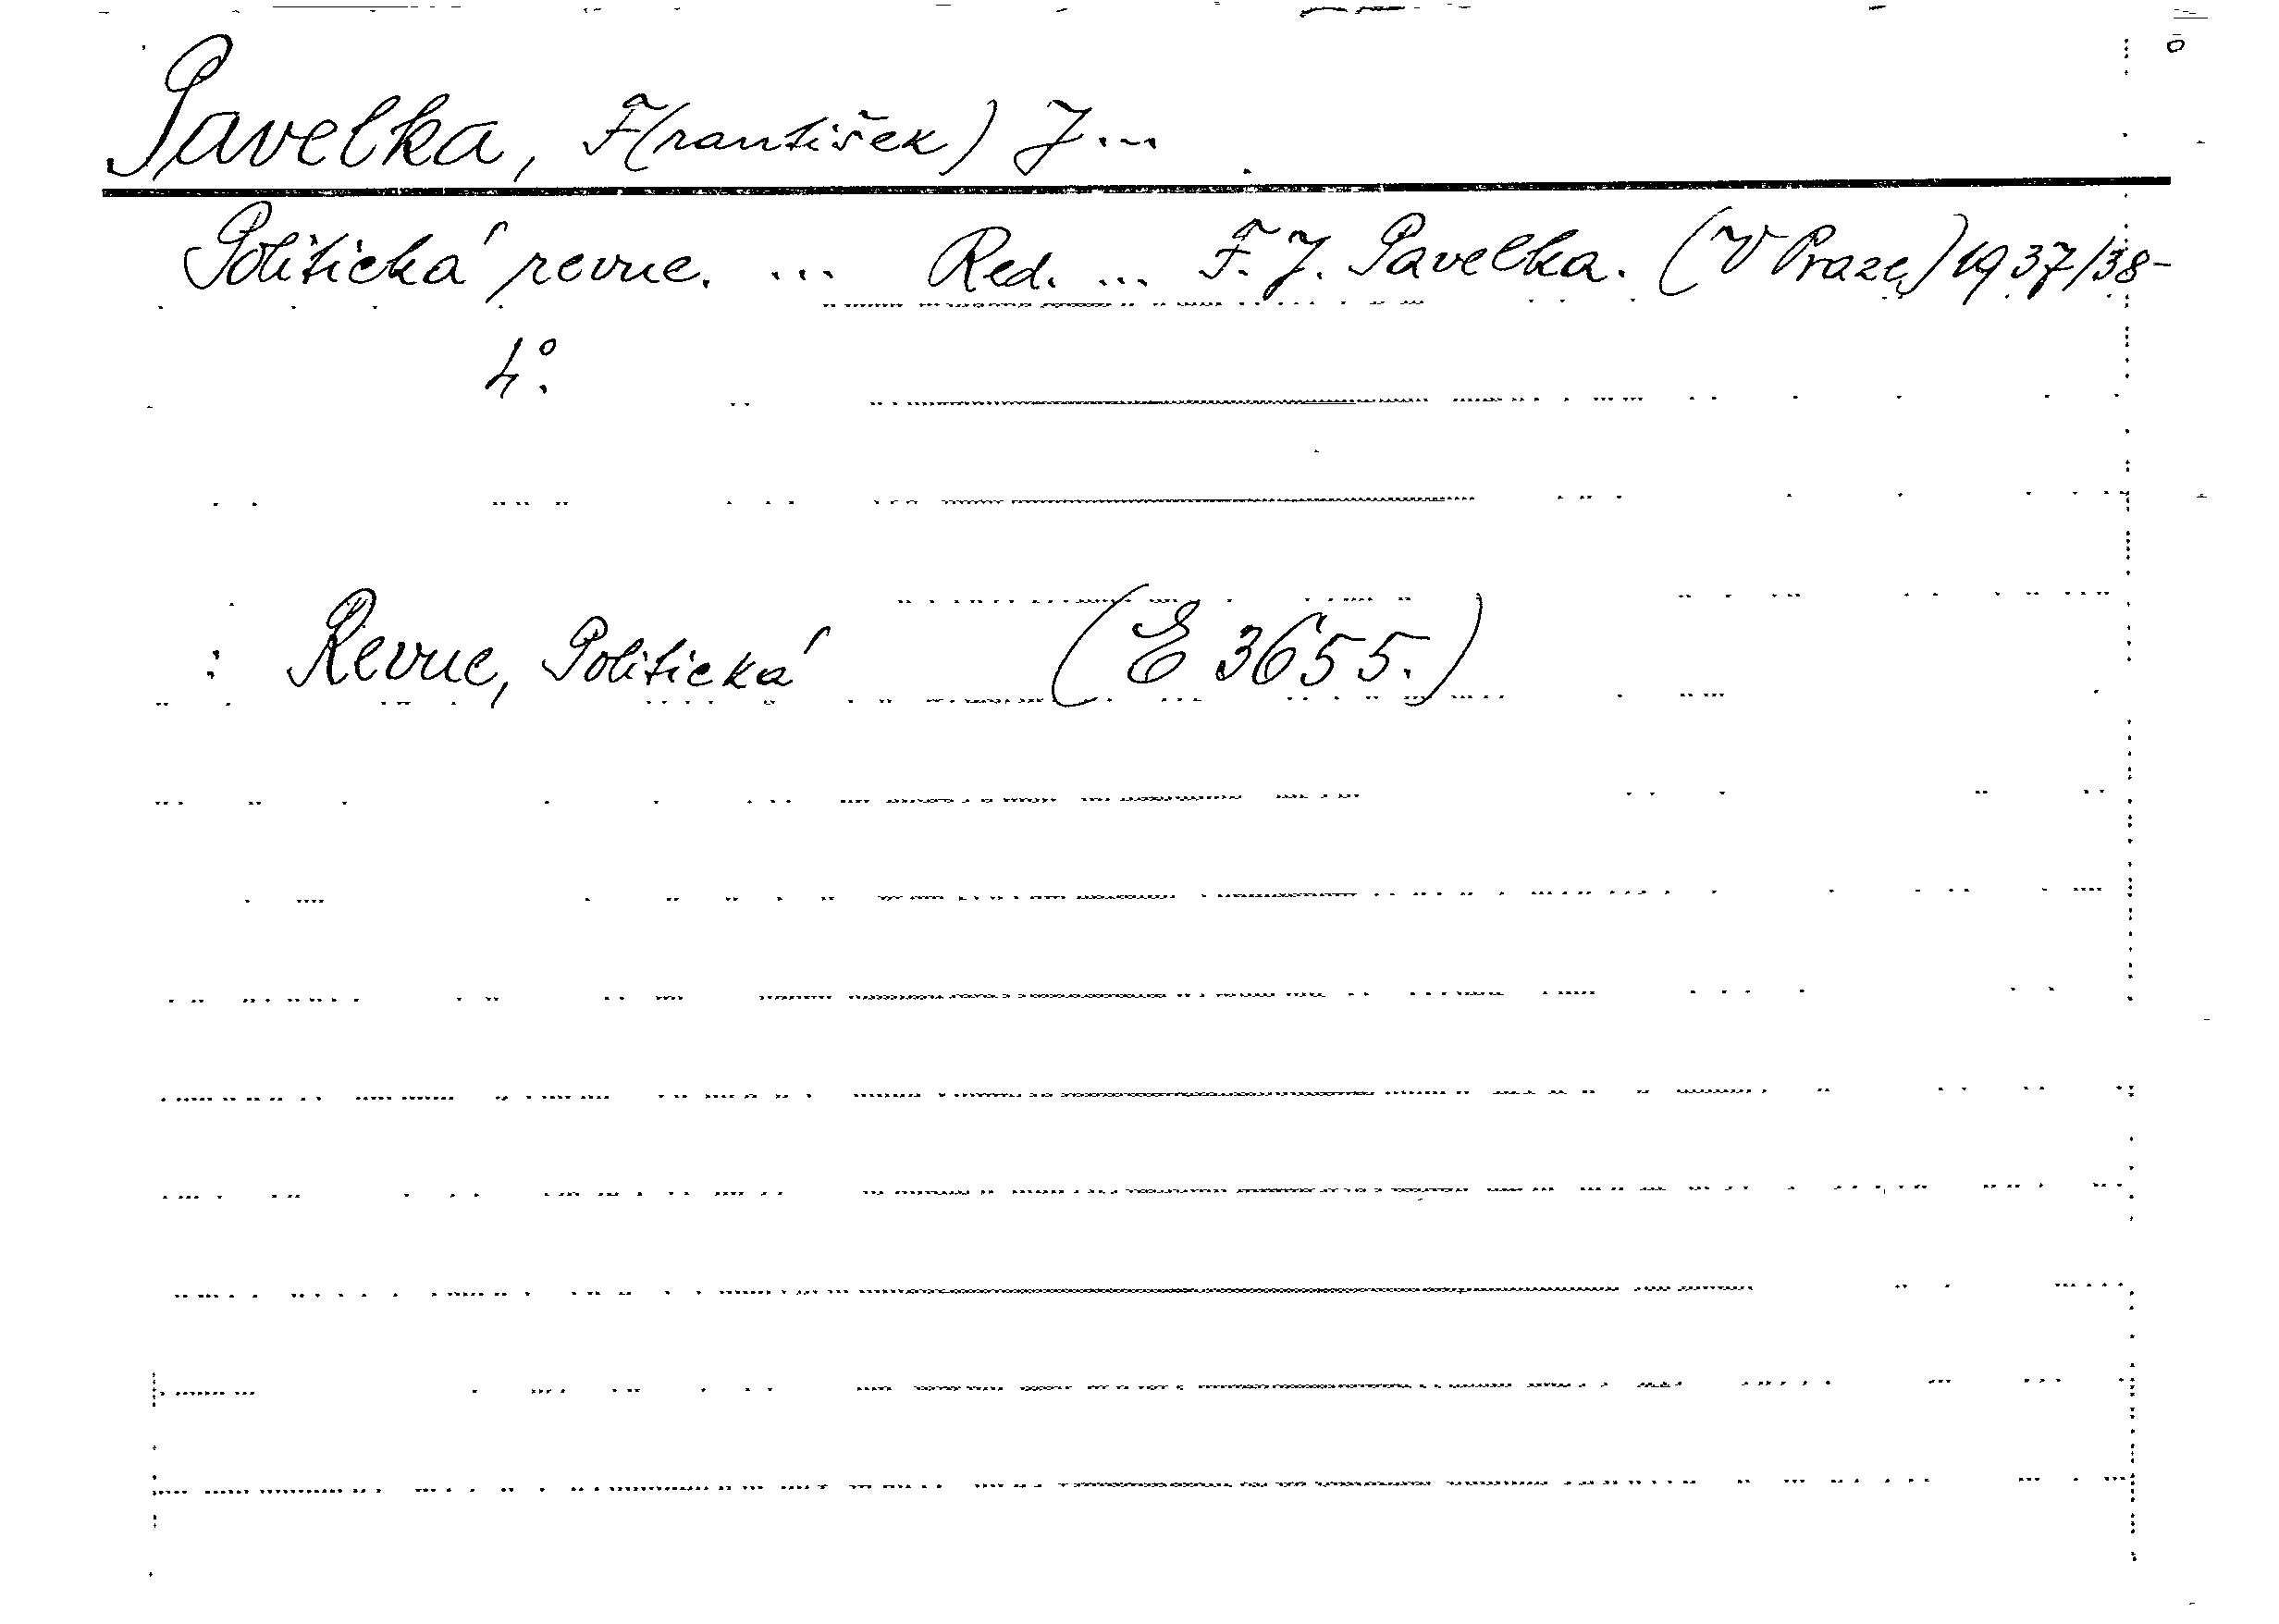 Pavelka, F(rantišek) J...
Politická revue. ... Red. ... F. J. Pavelka. (V Praze,) 1937/38-
4°.
: Revue, Politická (E 3655.)